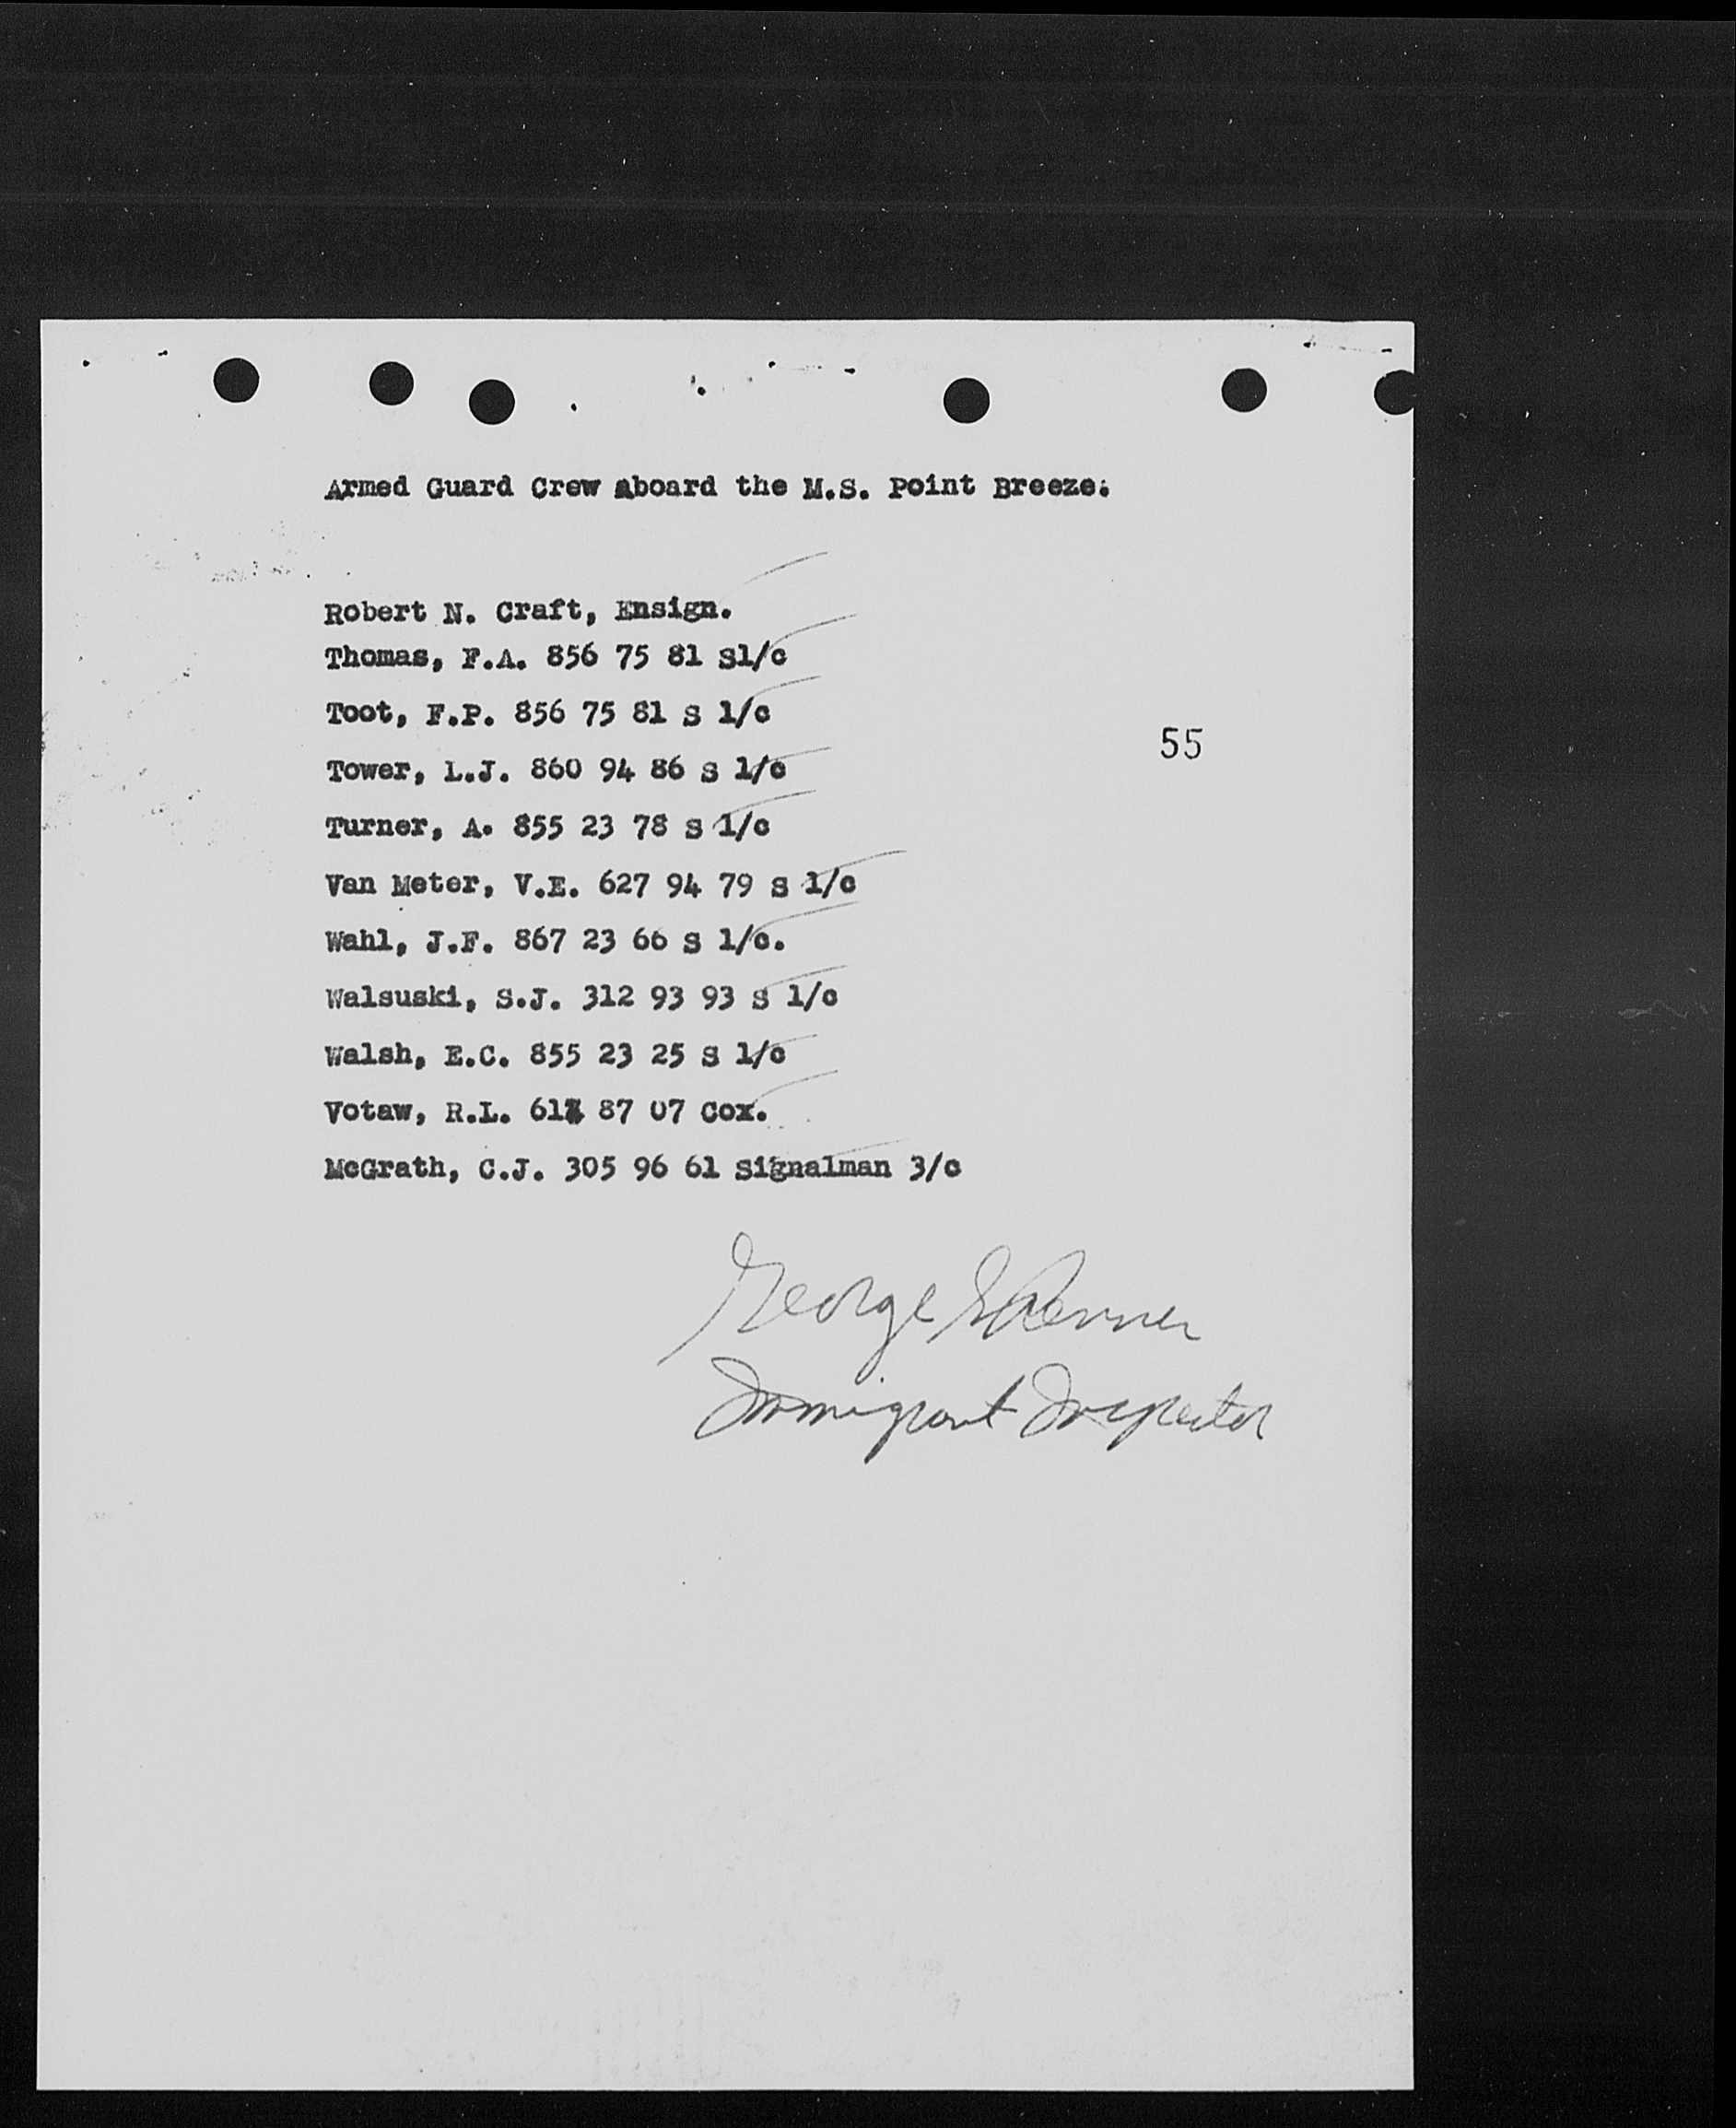 Armed Guard Crew Aboard the M.S. Point Breeze.
Robert N. Craft, Ensign.
Thomas, F.A. 856 75 81 S1/c
Toot, F.P. 856 75 81 S 1/c
55
Tower, L.J. 860 94 86 S 1/c
Turner, A. 855 23 78 S 1/c
Van Meter, V.E. 627 94 79 S 1/c
Wahl, J.F. 867 23 66 S 1/c.
Walsuski, S.J. 312 93 93 S 1/c
Walsh, E.C. 855 23 25 S 1/c
Votaw, R.L. 87 07 Cox.
McGrath, C.J. 305 96 61 Signalman 3/c
George
Immigrant Inspector